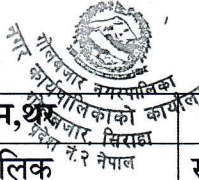 गोलबजार नगरपालिका
नगर कार्यपालिकाको कार्यालय
गोलबजार, सिराहा
प्रदेश नं.२ नेपाल
म,थर
लिक